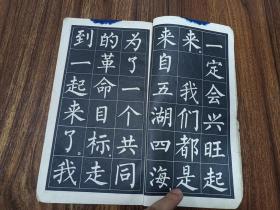 一定会兴旺起
来。我们都是
来自五湖四海
为了一个共同
的革命目标，走
到一起来了。我